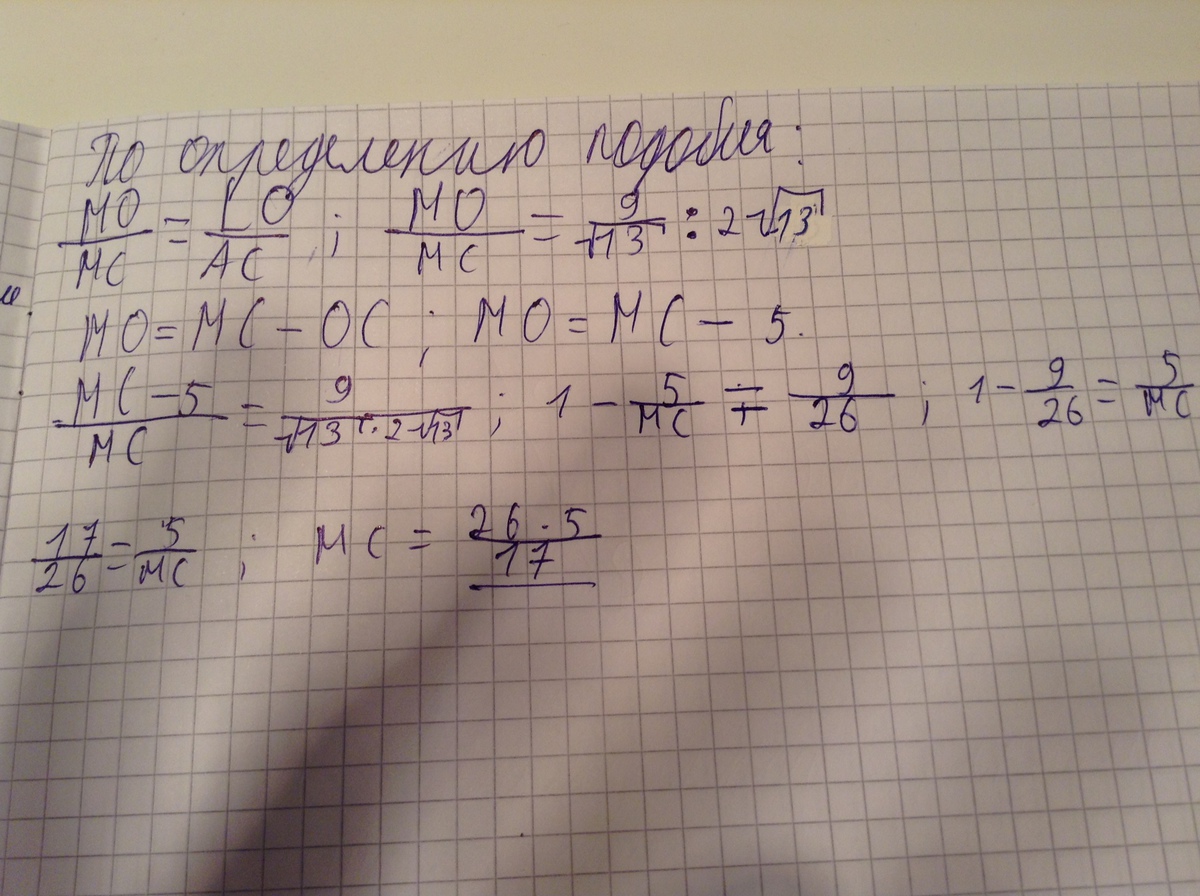 По определению подобия:
MO/MC = LO/AC ; MO/MC = 9/√13 : 2√13
MO = MC - OC ; MO = MC - 5.
(MC - 5)/MC = 9/(√13 · 2√13) ; 1 - 5/MC = 9/26 ; 1 - 9/26 = 5/MC
17/26 = 5/MC ; MC = (26 · 5)/17